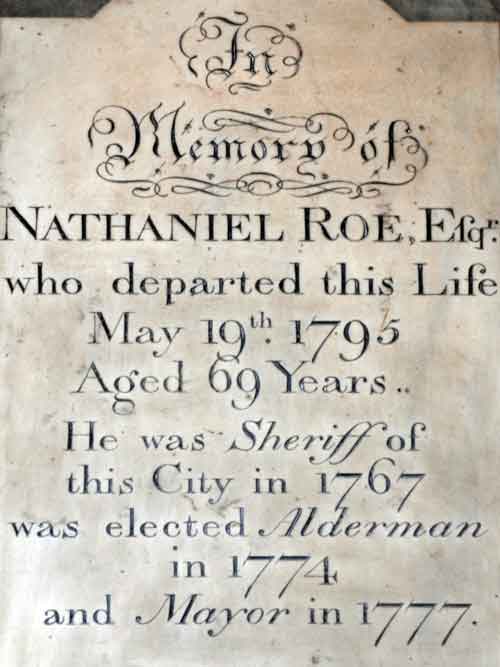 In
Memory of
NATHANIEL ROE, Eſqr.
who departed this Life
May 19th. 1795
Aged 69 Years..
He was Sheriff of
this City in 1767
was elected Alderman
in 1774
and Mayor in 1777.